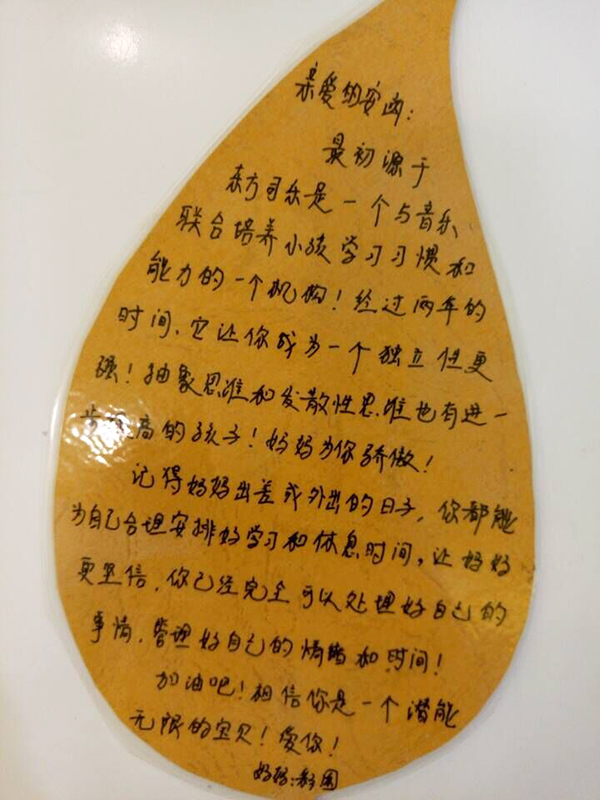 亲爱的安函:
最初源于
东方司乐是一个与音乐
联合培养小孩学习习惯和
能力的一个机构!经过两年的
时间,它让你成为一个独立性更
强!抽象思维和发散性思维也有进一
步高的孩子!妈妈为你骄傲!
记得妈妈出差或外出的日子,你都能
为自己合理安排好学习和休息时间,让妈妈
更坚信,你已经完全可以处理好自己的
事情,管理好自己的情绪和时间!
加油吧!相信你是一个潜能
无限的宝贝!爱你!
妈妈: